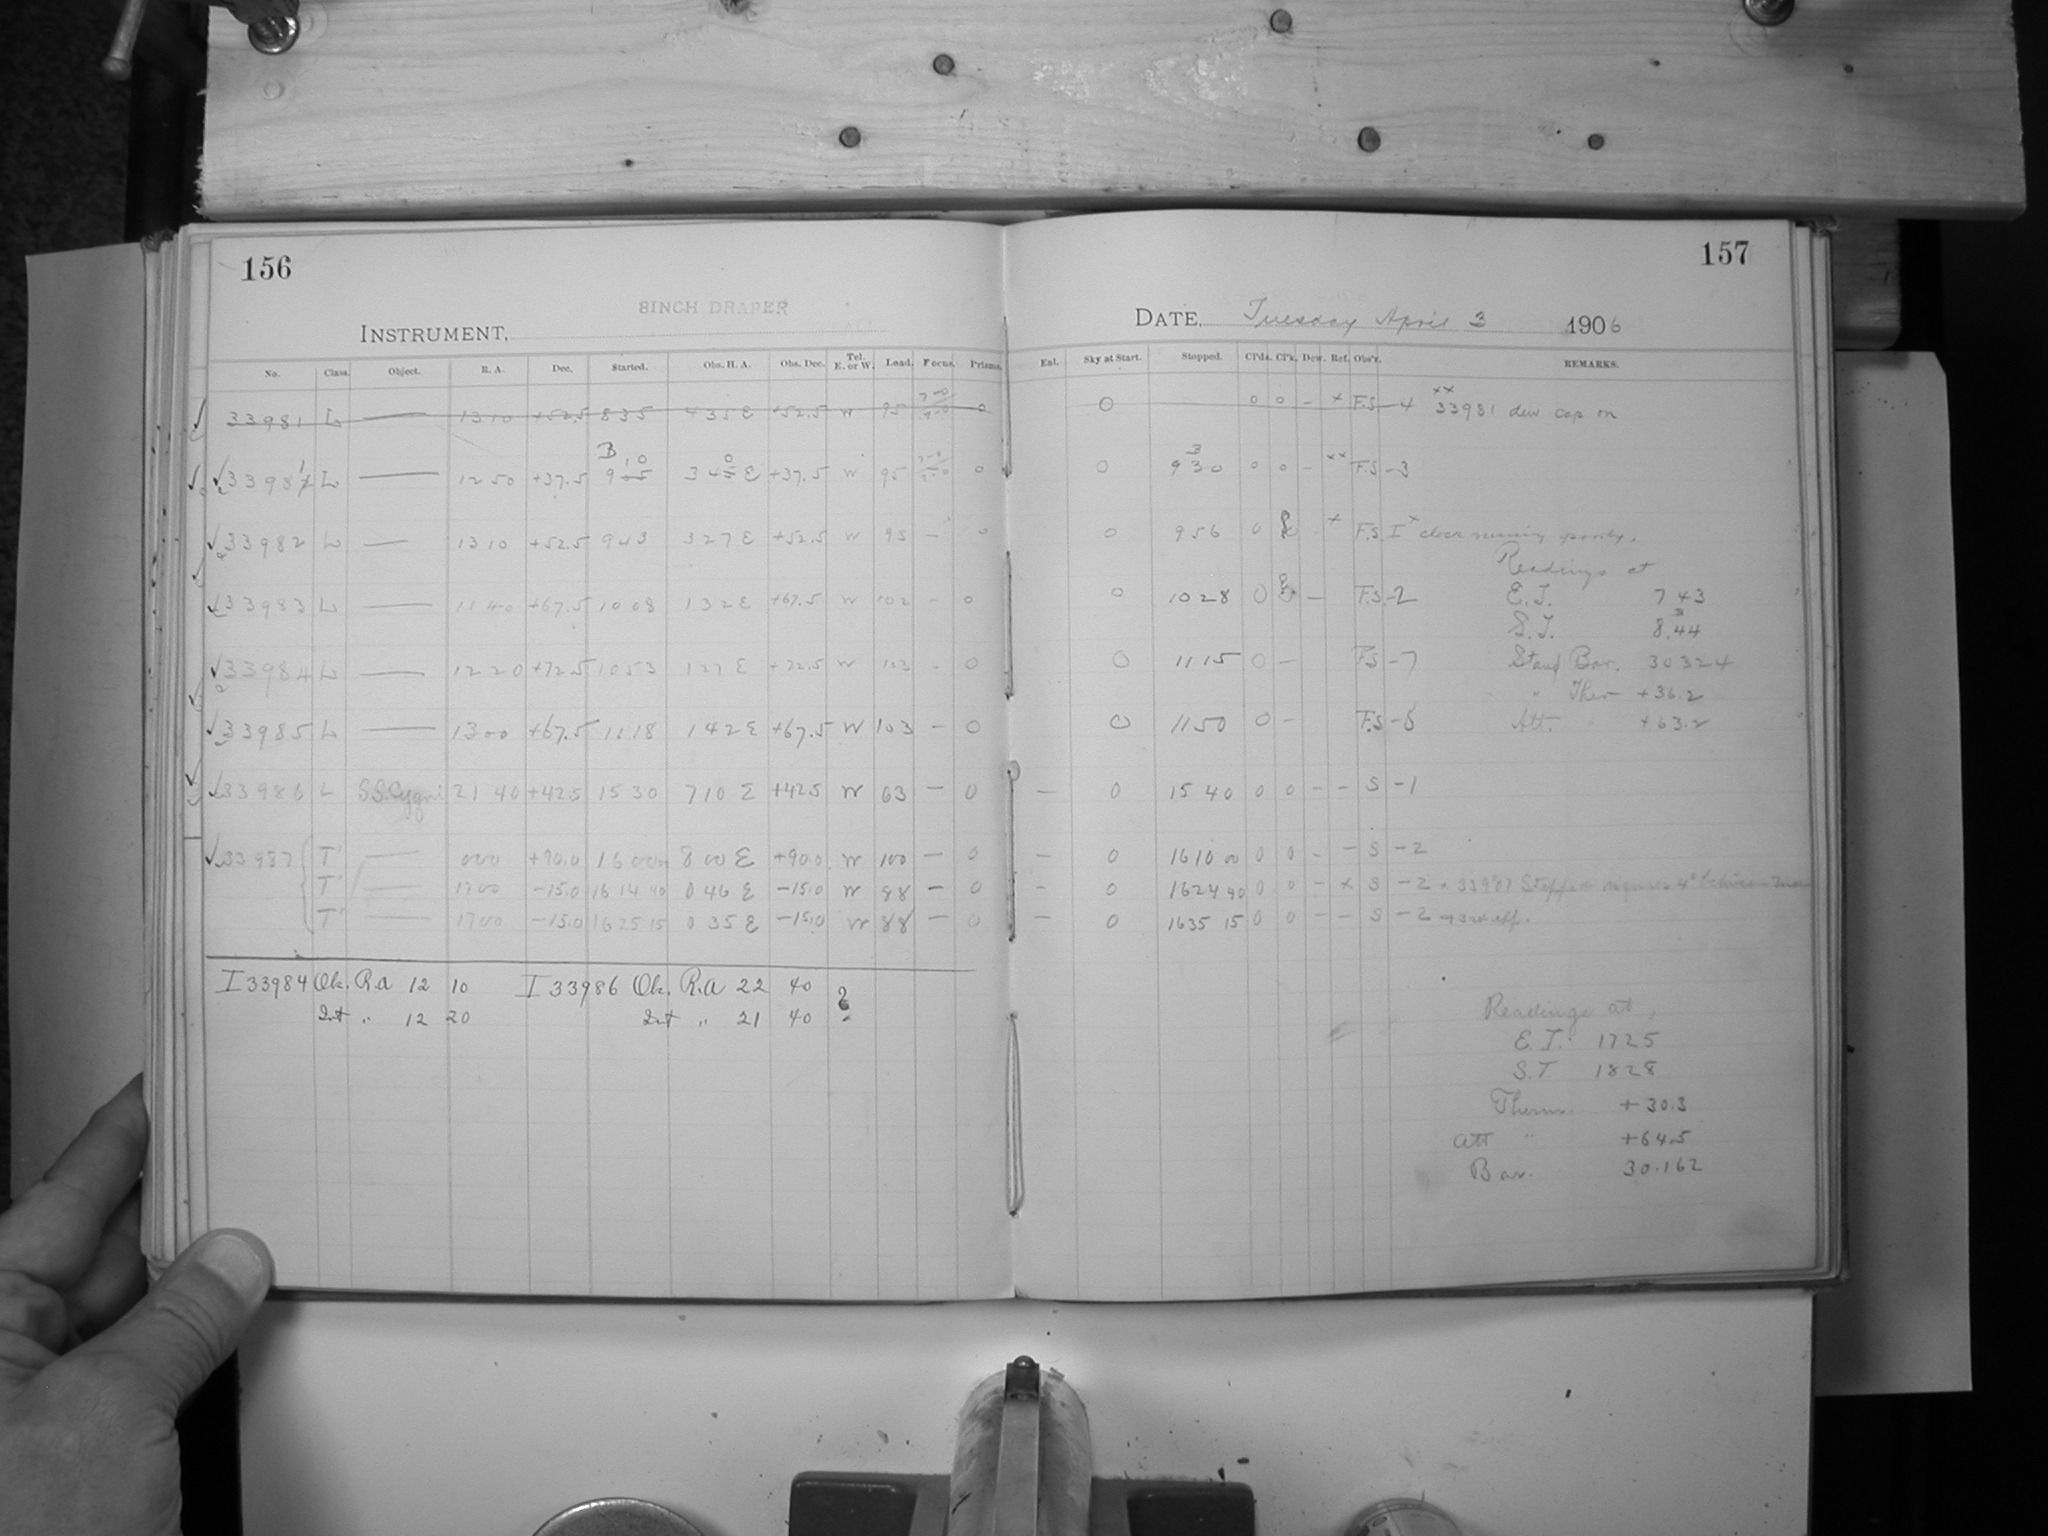 156
157
8INCH DRAPER
INSTRUMENT,
DATE, Tuesday April 3 1906
No. Class. Object. R. A. Dec. Started. Obs. H. A. Obs. Dec. Tel. E. or W. Load. Focus. Prisms. Enl. Sky at Start. Stopped. Cl'ds. Cl'k. Dew. Ref. Obs'r. REMARKS.
33981 L — 13 10 +52.5 8 35 4 35 E +52.5 W 95 0 0 0 0 - x F.S - 4 xx 33981 dew cap on
33981 L — 12 50 +37.5 9 10 3 40 E +37.5 W 95 0 0 9 30 0 0 - xx F.S - 3
33982 L — 13 10 +52.5 9 43 3 27 E +52.5 W 95 - 0 0 9 56 0 - x F.S. I x clock running poorly.
Readings at
33983 L — 11 40 +67.5 10 08 1 32 E +67.5 W 102 - 0 0 10 28 0 - F.S. - 2 E.T. 7 43
S.T. 8.44
33984 L — 12 20 +72.5 10 53 1 27 E +72.5 W 103 - 0 0 11 15 0 - F.S - 7 Stand Bar. 30324
" Ther +36.2
33985 L — 13 00 +67.5 11 18 1 42 E +67.5 W 103 - 0 0 11 50 0 - F.S - 5 Att. +63.2
33986 L SS.Cygni 21 40 +42.5 15 30 7 10 E +42.5 W 63 - 0 - 0 15 40 0 0 - - S - 1
33987 T' — 0 00 +90.0 16 00 00 8 00 E +90.0 W 100 - 0 - 0 16 10 00 0 0 - - S - 2
T' — 17 00 -15.0 16 14 40 0 46 E -15.0 W 88 - 0 - 0 16 24 40 0 0 - x S - 2 x 33987 Stopped signals 4s between 2nd
T' — 17 00 -15.0 16 25 15 0 35 E -15.0 W 88 - 0 - 0 16 35 15 0 0 - - S - 2 + 3rd exp.
I 33984 Ok. R.a 12 10 I 33986 Ok. R.a 22 40 ?
Int " 12 20 Int " 21 40
Readings at,
E.T. 1725
S.T. 1828
Therm. +30.3
Att " +64.5
Bar. 30.162